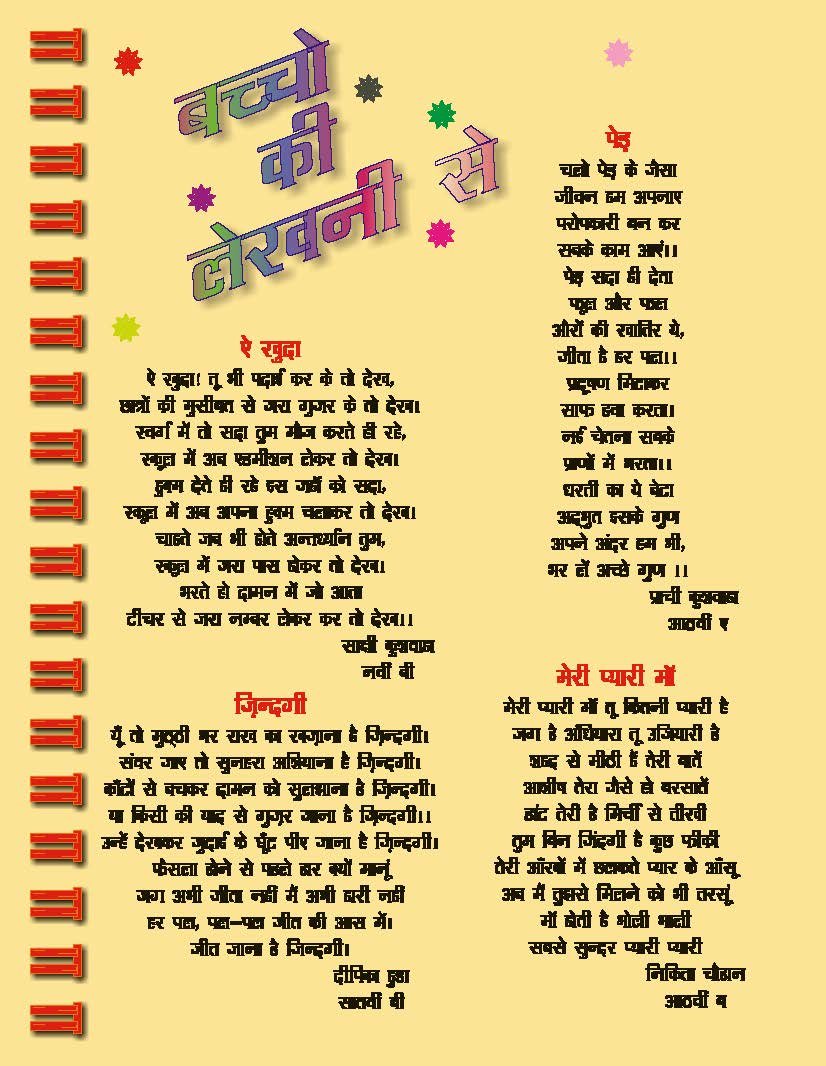 बच्चो
की
लेखनी से
ऐ खुदा
ऐ खुदा! तू भी पढाई कर के तो देख,
छात्रों की मुसीबत से जरा गुजर के तो देख।
स्वर्ग में तो सदा तुम मौज करते ही रहे,
स्कूल में अब एडमीशन लेकर तो देख।
हुक्म देते ही रहे इस जहाँ को सदा,
स्कूल में अब अपना हुक्म चलाकर तो देख।
चाहते जब भी होते अन्तर्ध्यान तुम,
स्कूल में जरा पास होकर तो देख।
भरते हो दामन में जो आता
टीचर से जरा नम्बर लेकर कर तो देख।।
साक्षी कुशवाह
नवीं बी
ज़िन्दगी
यूँ तो मुठ्ठी भर राख का खज़ाना है ज़िन्दगी।
संवर जाए तो सुनहरा आशियाना है ज़िन्दगी।
काँटों से बचकर दामन को सुलझाना है ज़िन्दगी।
या किसी की याद से गुज़र जाना है ज़िन्दगी।।
उन्हें देखकर जुदाई के घूँट पीए जाना है ज़िन्दगी।
फैसला होने से पहले हार क्यों मानूं
जग अभी जीता नहीं मैं अभी हारी नहीं
हर पल, पल–पल जीत की आस में।
जीत जाना है जिन्दगी।
दीपिका
सातवीं बी
पेड़
चलो पेड़ के जैसा
जीवन हम अपनाए
परोपकारी बन कर
सबके काम आएं।।
पेड़ सदा ही देता
फूल और फल
औरों की खातिर ये,
जीता है हर पल।।
प्रदूषण मिटाकर
साफ हवा करता।
नई चेतना सबके
प्राणों में भरता।।
धरती का ये बेटा
अद्भुत इसके गुण
अपने अंदर हम भी,
भर लें अच्छे गुण ।।
प्राची कुशवाह
आठवीं ए
मेरी प्यारी माँ
मेरी प्यारी माँ तू कितनी प्यारी है
जग है अंधियारा तू उजियारी है
शब्द से मीठी हैं तेरी बातें
आशीष तेरा जैसे हो बरसातें
डांट तेरी है मिर्ची से तीखी
तुम बिन जिंदगी है कुछ फीकी
तेरी आँखों में छलकते प्यार के आँसू
अब मैं तुझसे मिलने को भी तरसूं
माँ होती है भोली भाली
सबसे सुन्दर प्यारी प्यारी
निकिता चौहान
आठवीं ब